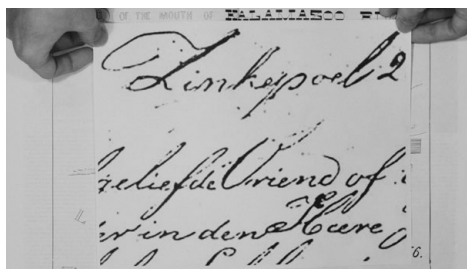 OF THE MOUTH OF KALAMAZOO
Zinkepoel 2
geliefde Vriend of
er in den Heere
6.